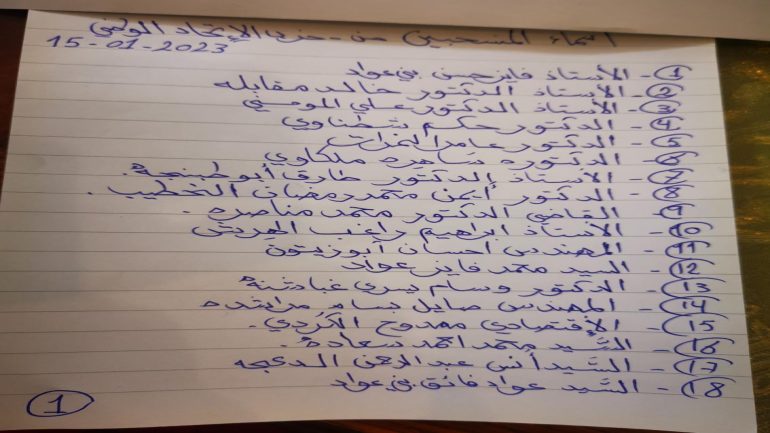 أسماء المنسحبين من - حزب الإتحاد الوطني
15-01-2023
1- الأستاذ فايز حسن بني عواد
2- الأستاذ الدكتور خالد مقابله
3- الأستاذ الدكتور علي المومني
4- الدكتور حكم شطناوي
5- الدكتور عامر النمرات
6- الدكتوره ساهره ملكاوي
7- الأستاذ الدكتور طارق أبو طبنجة.
8- الدكتور أيمن محمد رمضان الخطيب.
9- القاضي الدكتور محمد مناصره.
10- الأستاذ ابراهيم راغب
11- المهندس احسان أبوزيتون
12- السيد محمد فايز عواد
13- الدكتور وسام يسري عبادتنة
14- المهندس صايل بسام
15- الإقتصادي ممدوح الكردي.
16- السَّيد محمد احمد سعادة.
17- السَّيد أنس عبد الرحمن الدعجه
18- السَّيد عواد فائق بني عواد
1